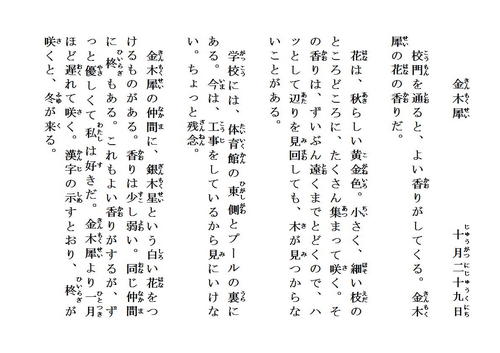 金木犀
十月二十九日
校門を通ると、よい香りがしてくる。金木
犀の花の香りだ。
花は、秋らしい黄金色。小さく、細い枝の
ところどころに、たくさん集まって咲く。そ
の香りは、ずいぶん遠くまでとどくので、ハ
ッとして辺りを見回しても、木が見つからな
いことがある。
学校には、体育館の東側とプールの裏に
ある。今は、工事をしているから見にいけな
い。ちょっと残念。
金木犀の仲間に、銀木星という白い花をつ
けるものがある。香りは少し弱い。同じ仲間
に柊もある。これもよい香りがするが、ず
っと優しくて私は好きだ。金木犀より一月
ほど遅れて咲く。漢字の示すとおり、柊が
咲くと、冬が来る。